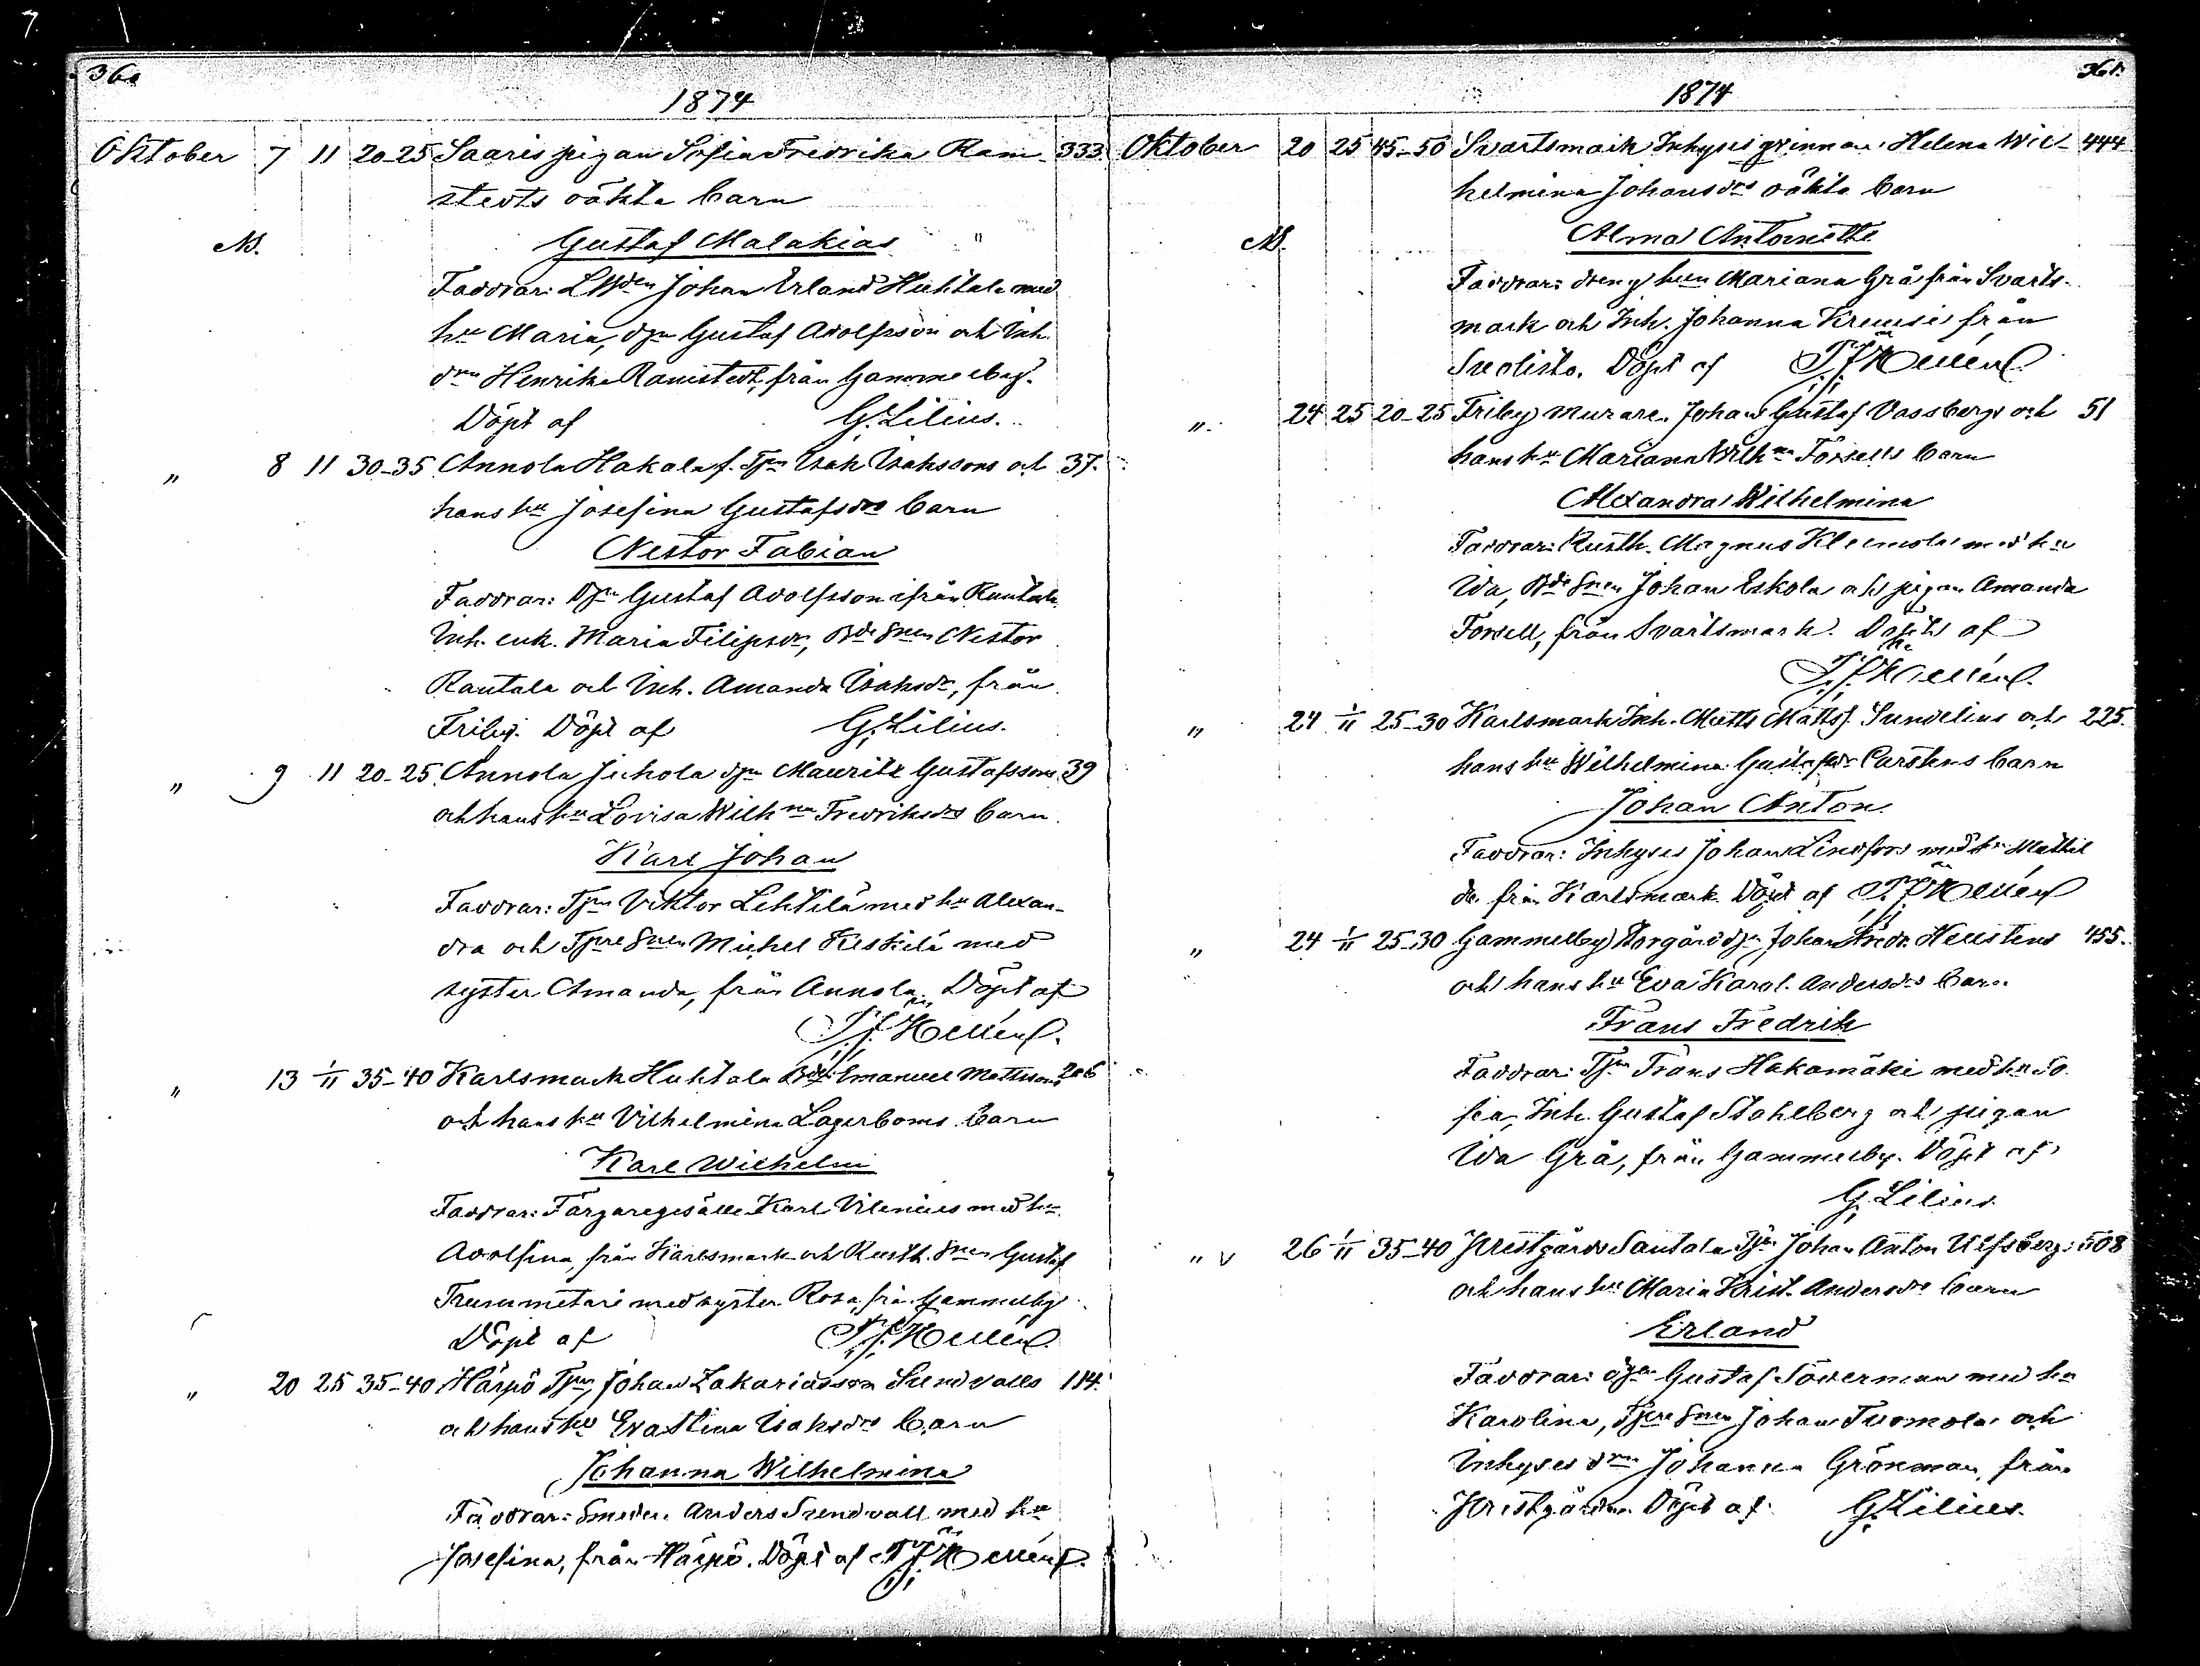 360
1874
Oktober 7 11 20-25 Saaris pigan Sofia Fredrika Ram- 333.
stedts oäkta barn
Gustaf Malakias
Faddrar: Johan Erland Huhtala med
hu Maria, Gustaf Adolfsson och Inh.
Henrika Ramstedt, från Gammelby.
Döpt af G. Lilius.
" 8 11 30-35 Annola Hakala f. Isak Isakssons och 37.
hans hu Josefina Gustafsdrs barn
Nestor Fabian
Faddrar: Gustaf Adolfsson ifrån Rautala
Inh. enk. Maria Filipsdr, Nestor
Rautala och Inh. Amanda Isaksdr, från
Friby. Döpt af G. Lilius.
" 9 11 20-25 Annola Juhola Mauritz Gustafssons 39
och hans hu Lovisa Wilhna Fredriksdrs barn
Karl Johan
Faddrar: Tjm Viktor Lehtilä med hu Alexan-
dra och Michel Keskilä med
syster Amanda, från Annola. Döpt af
Hellén
" 13 1/11 35-40 Karlsmark Huhtala Emanuel Mattssons 206
och hans hu Vilhelmina Lagerboms barn
Karl Wilhelm
Faddrar: Färgaregesälle Karl Vilenius med hu
Adolfina, från Karlsmark och Rusth. Gustaf
med syster Rosa, från Gammelby
Döpt af Hellén
" 20 25 35-40 Härpö Tjm Johan Zakariasson Sundvalls 114.
och hans hu Eva Stina Isaksdrs barn
Johanna Wilhelmina
Faddrar: Smeden Anders Sundvall med hu
Josefina, från Härpö. Döpt af Hellén
361.
1874
Oktober 20 25 45-50 Svartsmark Inhysesqvinnan Helena Wil- 444
helmina Johansdrs oäkta barn
Alma Antoinette
Faddrar: Mariana Grå från Svarts-
mark och Inh. Johanna från
Döpt af Hellén
" 24 25 20-25 Friby murare Johan Gustaf Vassbergs och 51
hans hu Mariana Wilhna Forsells barn
Alexandra Wilhelmina
Faddrar: Rusth. Magnus Kleemola med hu
Ida, Johan Eskola och pigan Amanda
Forsell, från Svartsmark. Döpt af
Hellén
" 24 1/11 25-30 Karlsmark Inh. Matts Mattsf. Sundelius och 225.
hans hu Wilhelmina Gustafsdr Carstens barn
Johan Anton
Faddrar: Inhyses Johan Lindfors med hu Mathil
da från Karlsmark. Döpt af Hellén
" 24 1/11 25-30 Gammelby Johan Fredr. Hellstens 455.
och hans hu Eva Karol. Andersdrs barn
Frans Fredrik
Faddrar: Tjm Frans Hakamäki med hu So-
fia, Inh. Gustaf Stohlberg och pigan
Ida Grå, från Gammelby. Döpt af
G. Lilius.
" v 26 1/11 35-40 Santala Johan Anton Ulfsberg 508
och hans hu Maria Krist. Andersdrs barn
Erland
Faddrar: Gustaf Söderman med hu
Karolina, Johan Tuomola och
Inhyses Johanna Grönman, från
Döpt af G. Lilius.